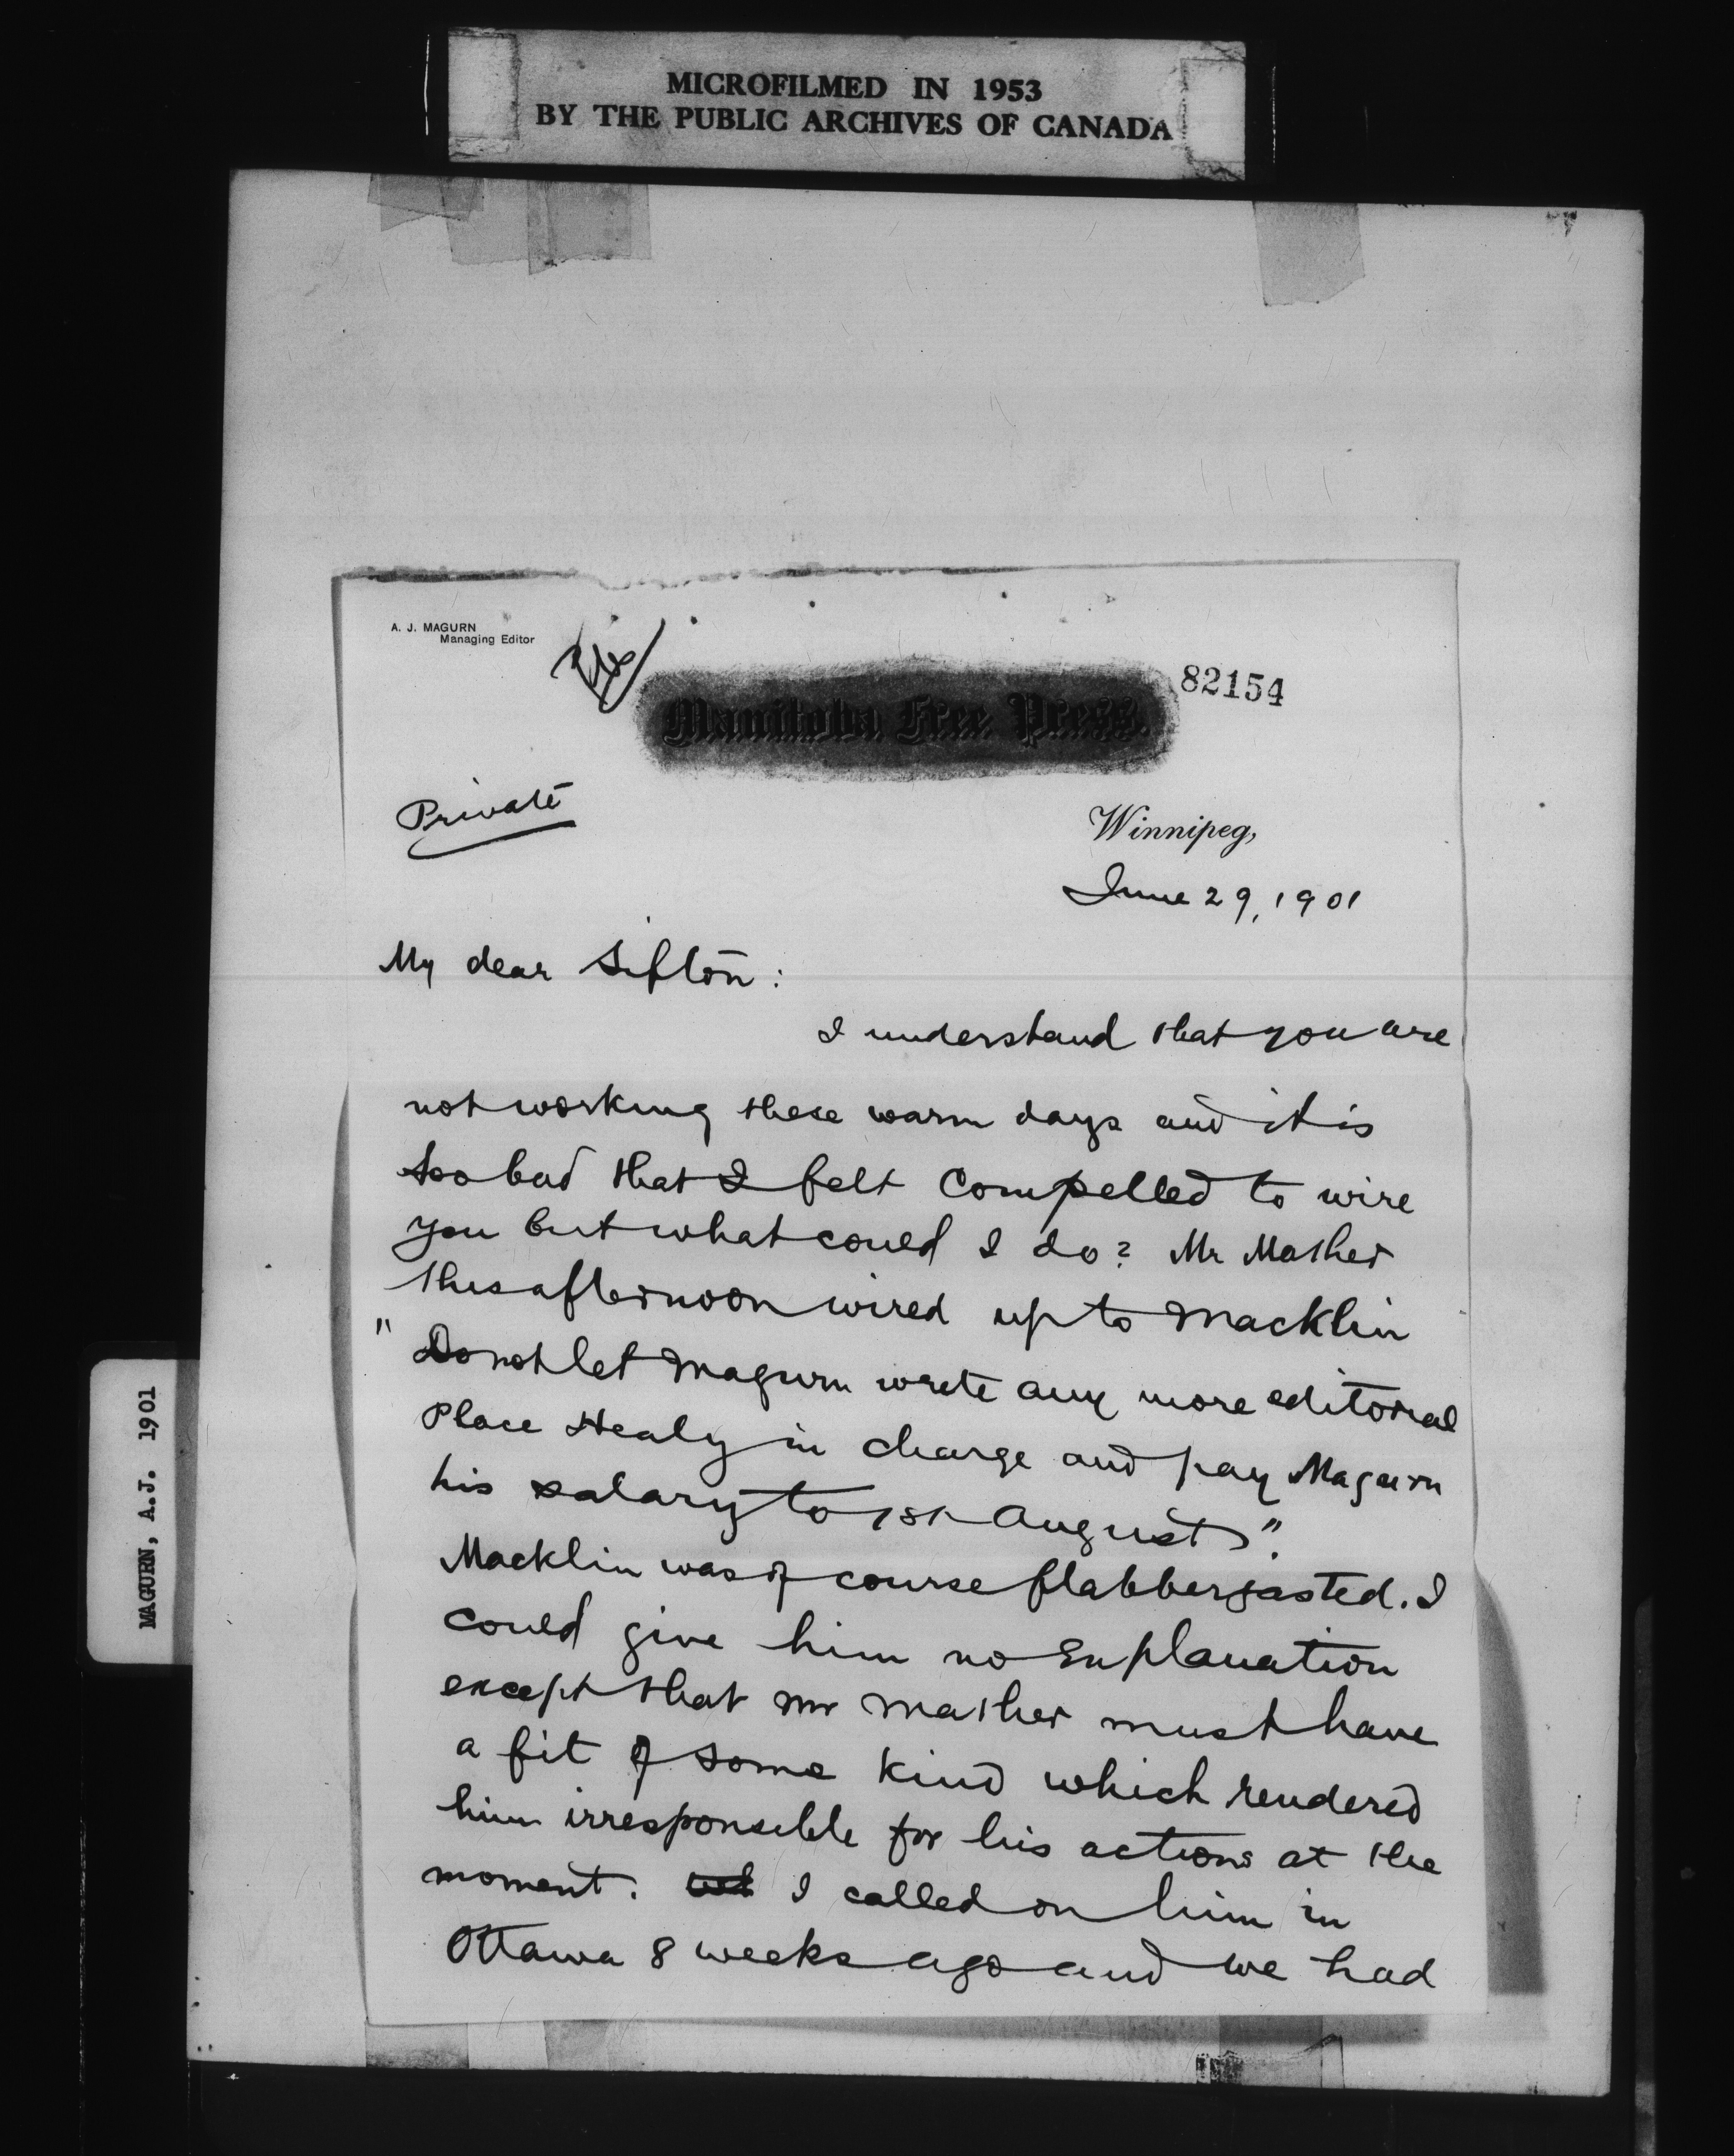 MICROFILMED IN 1953
BY THE PUBLIC ARCHIVES OF CANADA
A. J. MAGURN
Managing Editor
File
82154
Manitoba Free Press.
Private
Winnipeg,
June 29, 1901
My dear Sifton:
I understand that you are
not working these warm days and it is
too bad that I felt compelled to wire
you but what could I do? Mr Mather
this afternoon wired up to Macklin
"Do not let Magurn write any more editorial
Place Healy in charge and pay Magurn
his salary to 1st August".
Macklin was of course flabbergasted. I
could give him no explanation
except that Mr Mather must have
a fit of some kind which rendered
him irresponsible for his actions at the
moment. I called on him in
Ottawa 8 weeks ago and we had
MAGURN, A.J. 1901